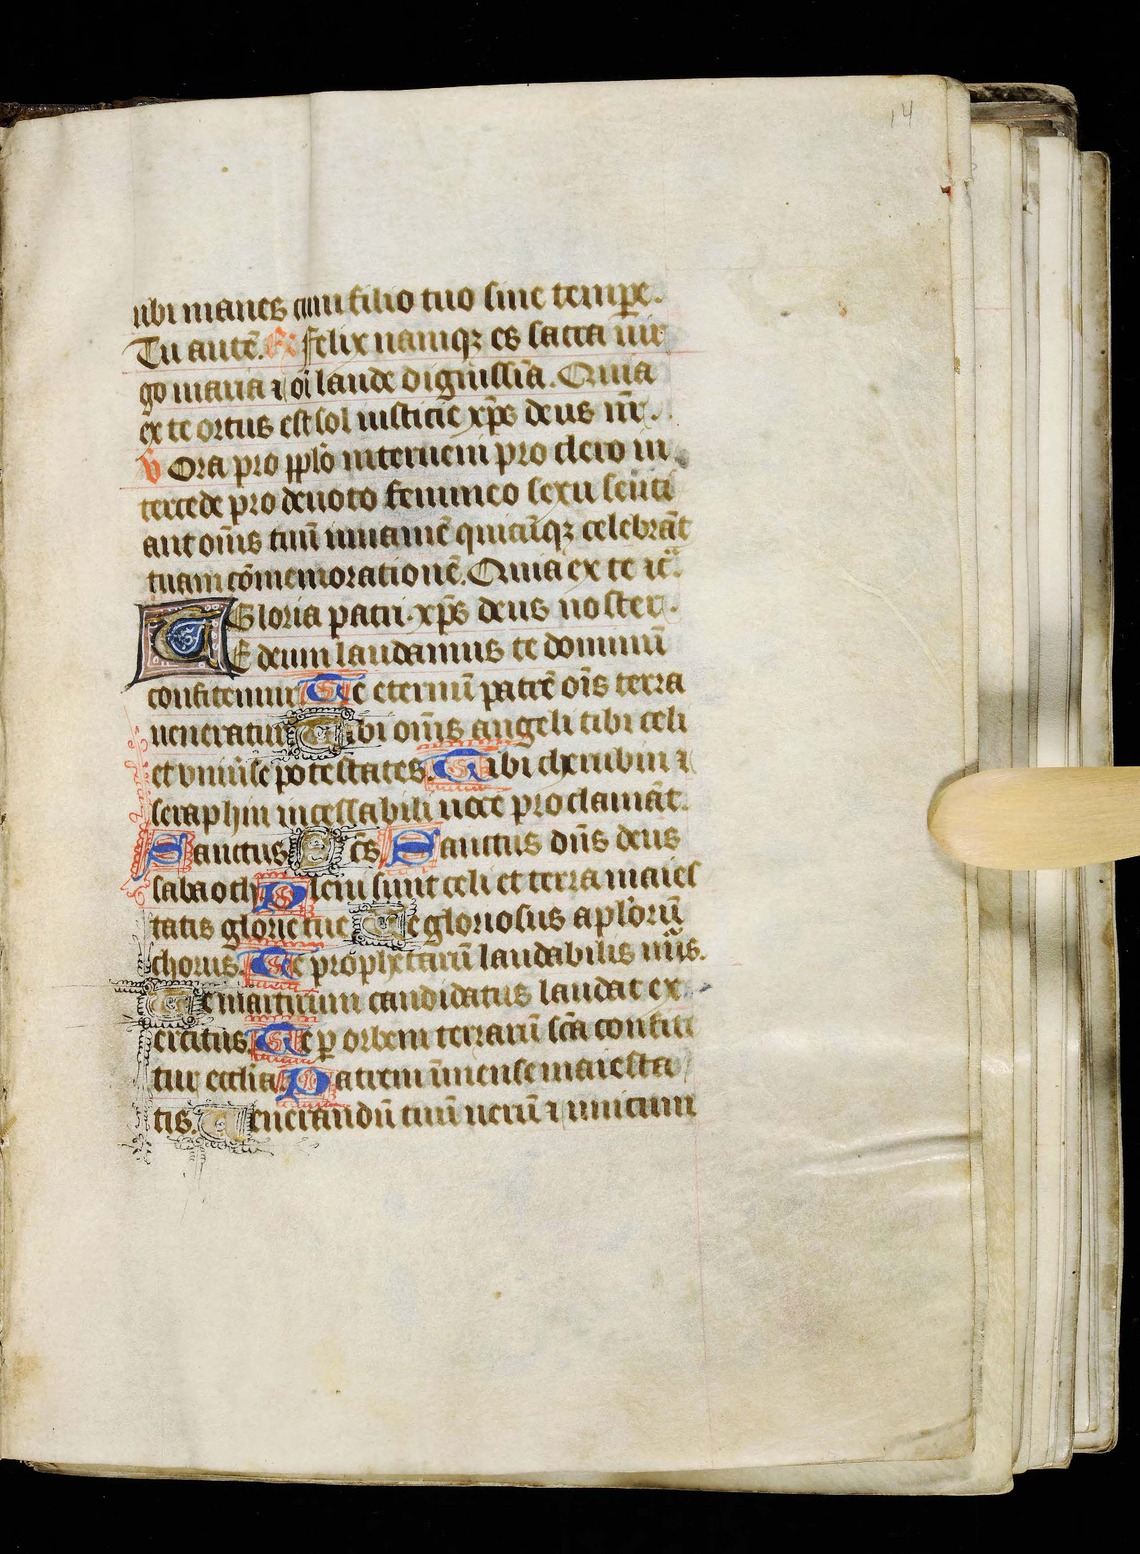 14
ubi manes cum filio tuo sine temp̲e.
Tu autē. R̷ Felix namqꝫ es sacra uir
go maria ⁊ oī laude dignissīa. Quia
ex te ortus est sol iusticie xp̄s deus nr̄.
v Ora pro pp̄lo interueni pro clero in
tercede pro deuoto femineo sexu sēciā
ant om̄is tuū iuuamē quicūqꝫ celebrāt
tuam cōmemorationē. Quia ex te ꝛc̄.
Gloria patri. xp̄s deus noster.
TE deum laudamus te dominū
confitemur Te eternū patrē oīs terra
ueneratur Tibi om̄is angeli tibi celi
et vniūse potestates. Tibi cherubin ⁊
seraphin incessabili uoce proclamāt.
Sanctus Scs̄ Sanctus dn̄s deus
sabaoth Pleni sunt celi et terra maies
tatis glorie tue Te gloriosus aplorū
chorus. Te prophetarū laudabilis nūs.
Te martirum candidatus laudat ex
ercitus Te ꝑ orbem terrarū scā confite
tur ecclia Patrem īmense maiesta
tis. Uenerandū tuū uerū ⁊ unicum